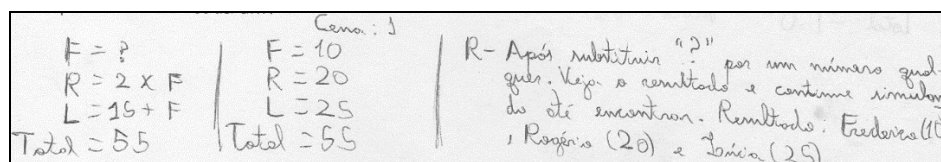 Cena: 1
F = ?
R = 2 x F
L = 15 + F
Total = 55
F = 10
R = 20
L = 25
Total = 55
R- Após substituir "?" por um número qual-
quer. Veja o resultado e continue simulan
do até encontrar. Resultado. Frederico (10
, Rogério (20) e Lúcia (25)